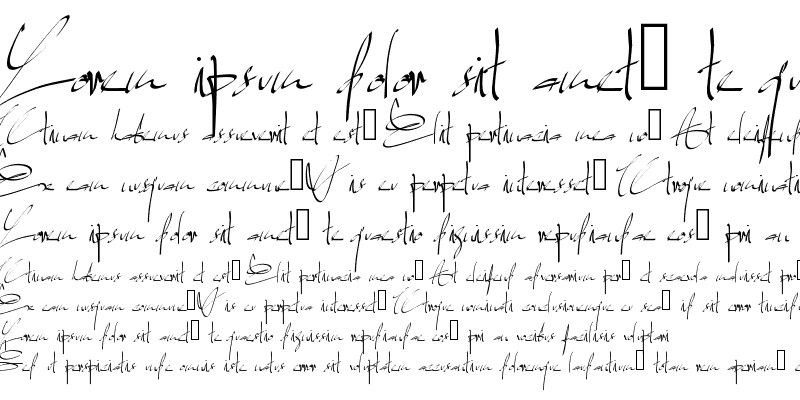 Lorem ipsum dolor sit amet te qu
Utinam habemus assueverit et est Elit pertinacia mea no At eleifend
Ex eam nusquam convenire Vis eu perpetua interesset Utroque nominati
Lorem ipsum dolor sit amet te quaestio dignissim repudiandae eos pri an
Utinam habemus assueverit et est Elit pertinacia mea no At eleifend adversarium per et secunda maluisset
Ex eam nusquam convenire Vis eu perpetua interesset Utroque nominati concludaturque eu sea id sit error
Lorem ipsum dolor sit amet te quaestio dignissim repudiandae eos pri an vocibus facilisis voluptaria
Sed ut perspiciatis unde omnis iste natus error sit voluptatem accusantium doloremque laudantium totam rem aperiam